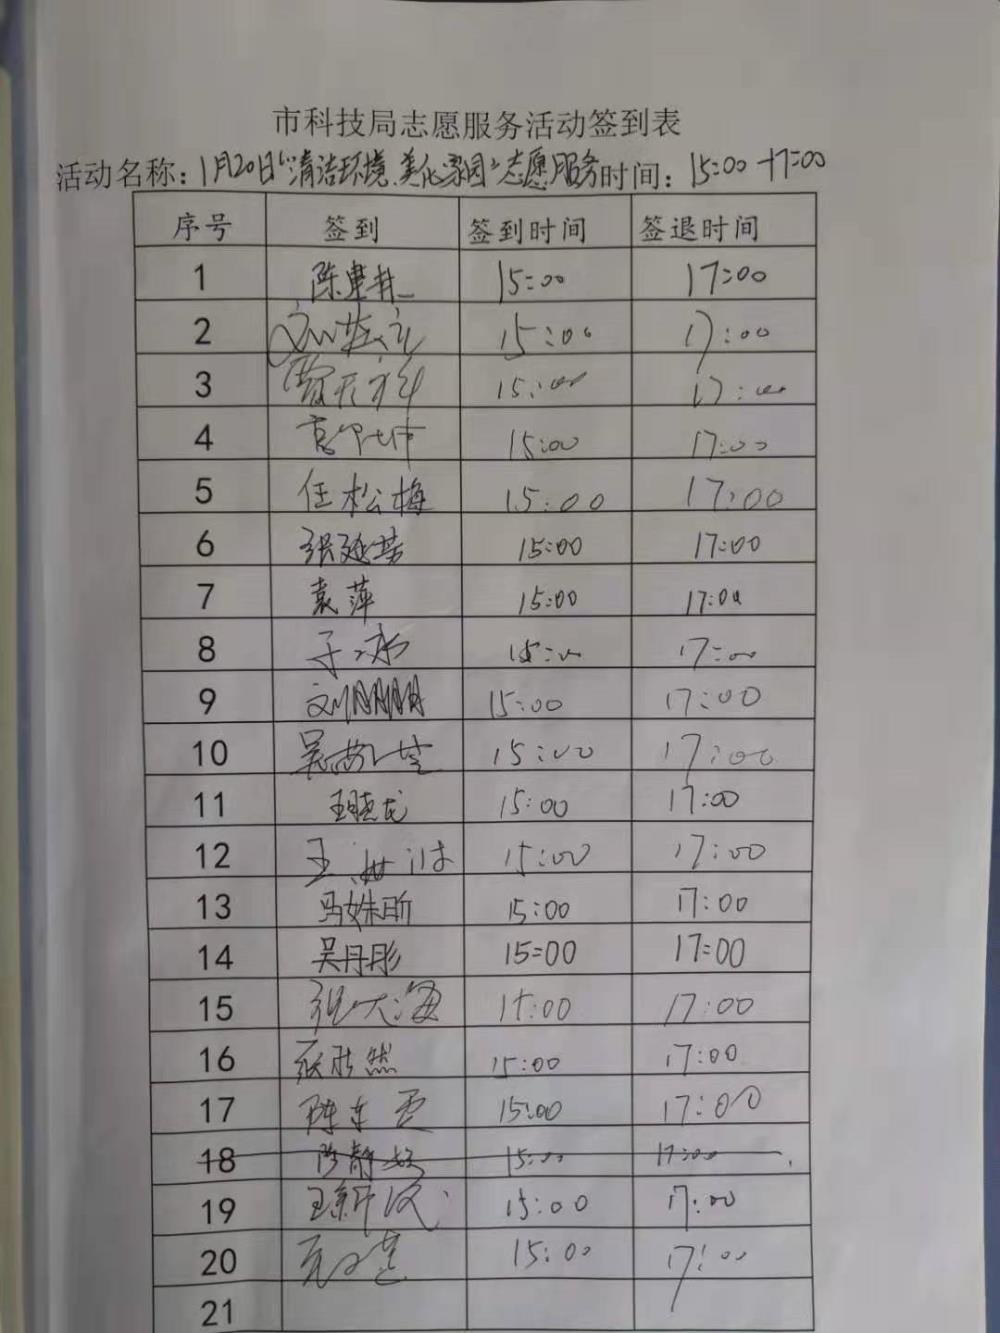 市科技局志愿服务活动签到表
活动名称：1月20日“清洁环境、美化家园”志愿服务时间：15:00-17:00
序号 签到 签到时间 签退时间
1 陈建井 15:00 17:00
2 15:00 17:00
3 15:00 17:00
4 15:00 17:00
5 任松梅 15:00 17:00
6 张延芳 15:00 17:00
7 袁萍 15:00 17:00
8 于冰 15:00 17:00
9 刘鹏鹏 15:00 17:00
10 吴 15:00 17:00
11 王晓龙 15:00 17:00
12 王 15:00 17:00
13 马姝昕 15:00 17:00
14 吴丹彤 15:00 17:00
15 张大海 15:00 17:00
16 然 15:00 17:00
17 陈东 15:00 17:00
18 陈静 15:00 17:00
19 王新 15:00 17:00
20 15:00 17:00
21